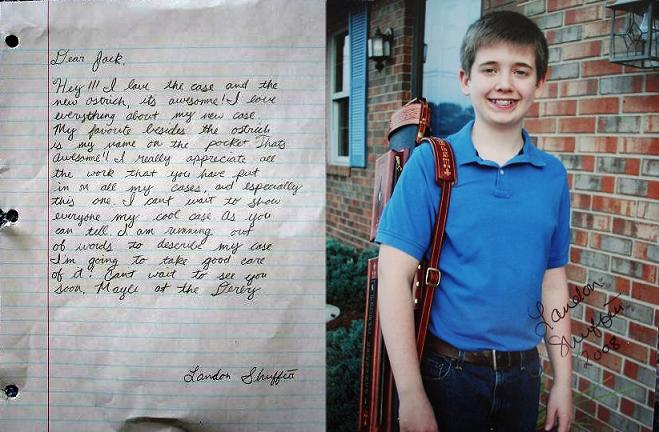 Dear Jack,
Hey!!! I love the case and the
new ostrich, its awesome! I love
everything about my new case.
My favorite besides the ostrich
is my name on the pocket Thats
awesome!! I really appreciate all
the work that you have put
in all my cases, and especially
this one. I cant wait to show
everyone my cool case. As you
can tell I am running out
of words to describe my case
I'm going to take good care
of it! Cant wait to see you
soon, Maybe at the Derby
Landon Shuffitt
Landon
Shuffitt
2008